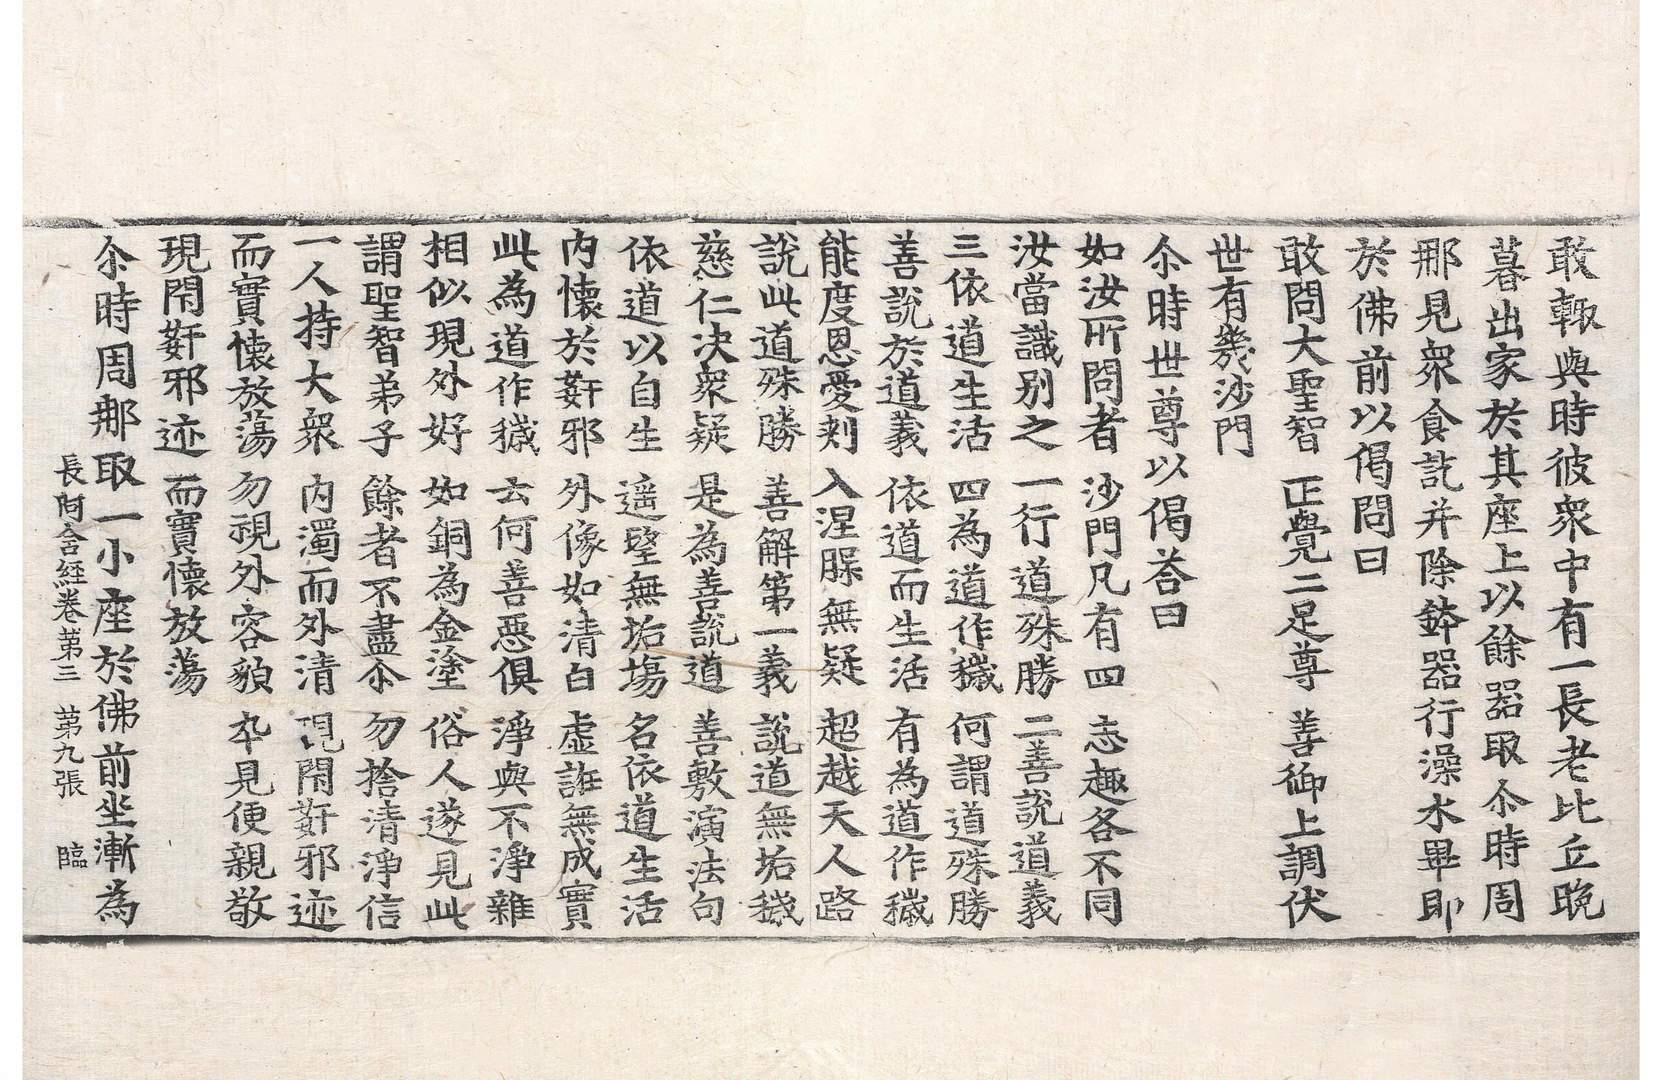 敢輙與時彼衆中有一長老比丘晩
暮出家於其座上以餘器取尒時周
那見衆食訖并除鉢器行澡水畢即
於佛前以偈問曰
敢問大聖智 正覺二足尊 善御上調伏
世有幾沙門
尒時世尊以偈荅曰
如汝所問者 沙門凡有四 志趣各不同
汝當識别之 一行道殊勝 二善説道義
三依道生活 四為道作穢 何謂道殊勝
善説於道義 依道而生活 有為道作穢
能度恩愛刾 入涅脲無疑 超越天人路
説此道殊勝 善解苐一義 説道無垢穢
慈仁决衆疑 是為善説道 善敷演法句
依道以自生 遥望無垢塲 名依道生活
内懷於姧邪 外像如清白 虚誑無成實
此為道作穢 云何善惡俱 淨與不淨雜
相似現外好 如銅為金塗 俗人遂見此
謂聖智弟子 餘者不盡尒 勿捨清淨信
一人持大衆 内濁而外清 現閇姧邪迹
而實懷放蕩 勿視外容貌 卒見便親敬
現閇姧邪迹 而實懷放蕩
尒時周那取一小座於佛前坐漸為
長阿含經卷苐三 苐九張 臨